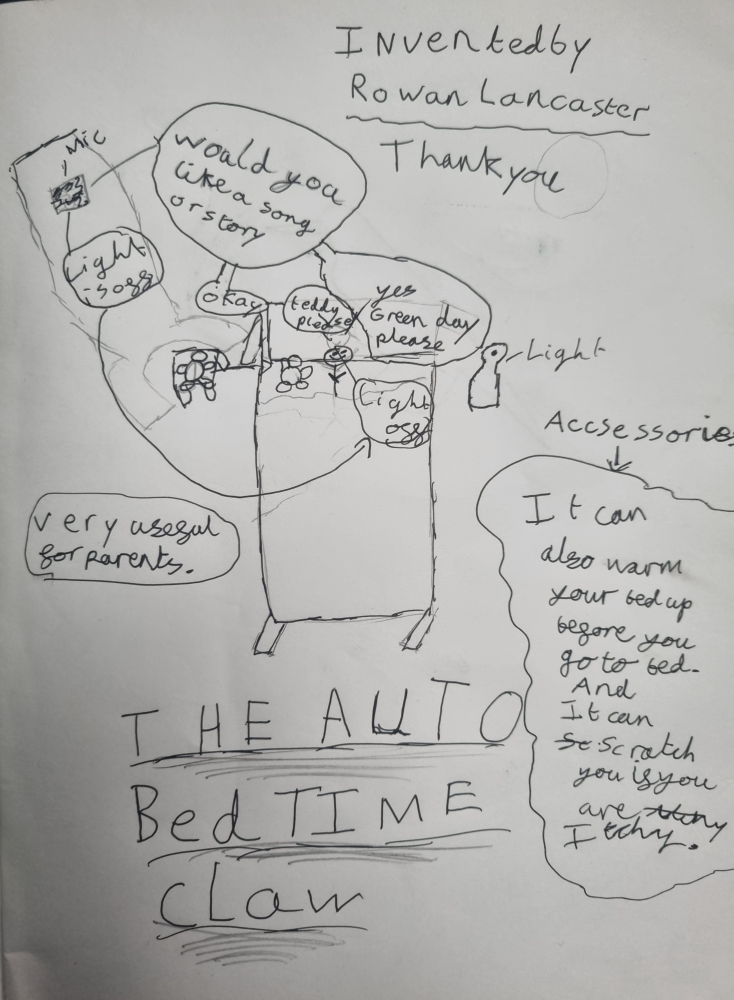 Inventedby
Rowan Lancaster
Thankyou
Mic
would you
like a song
or story
Light
is off
okay
teddy
please
yes
Green day
please
Light
Light
off
Accsessories
It can
also warm
your bed up
before you
go to bed.
And
It can
scratch
you if you
are
Itchy.
very useful
for parents.
THE AUTO
BedTIME
claw